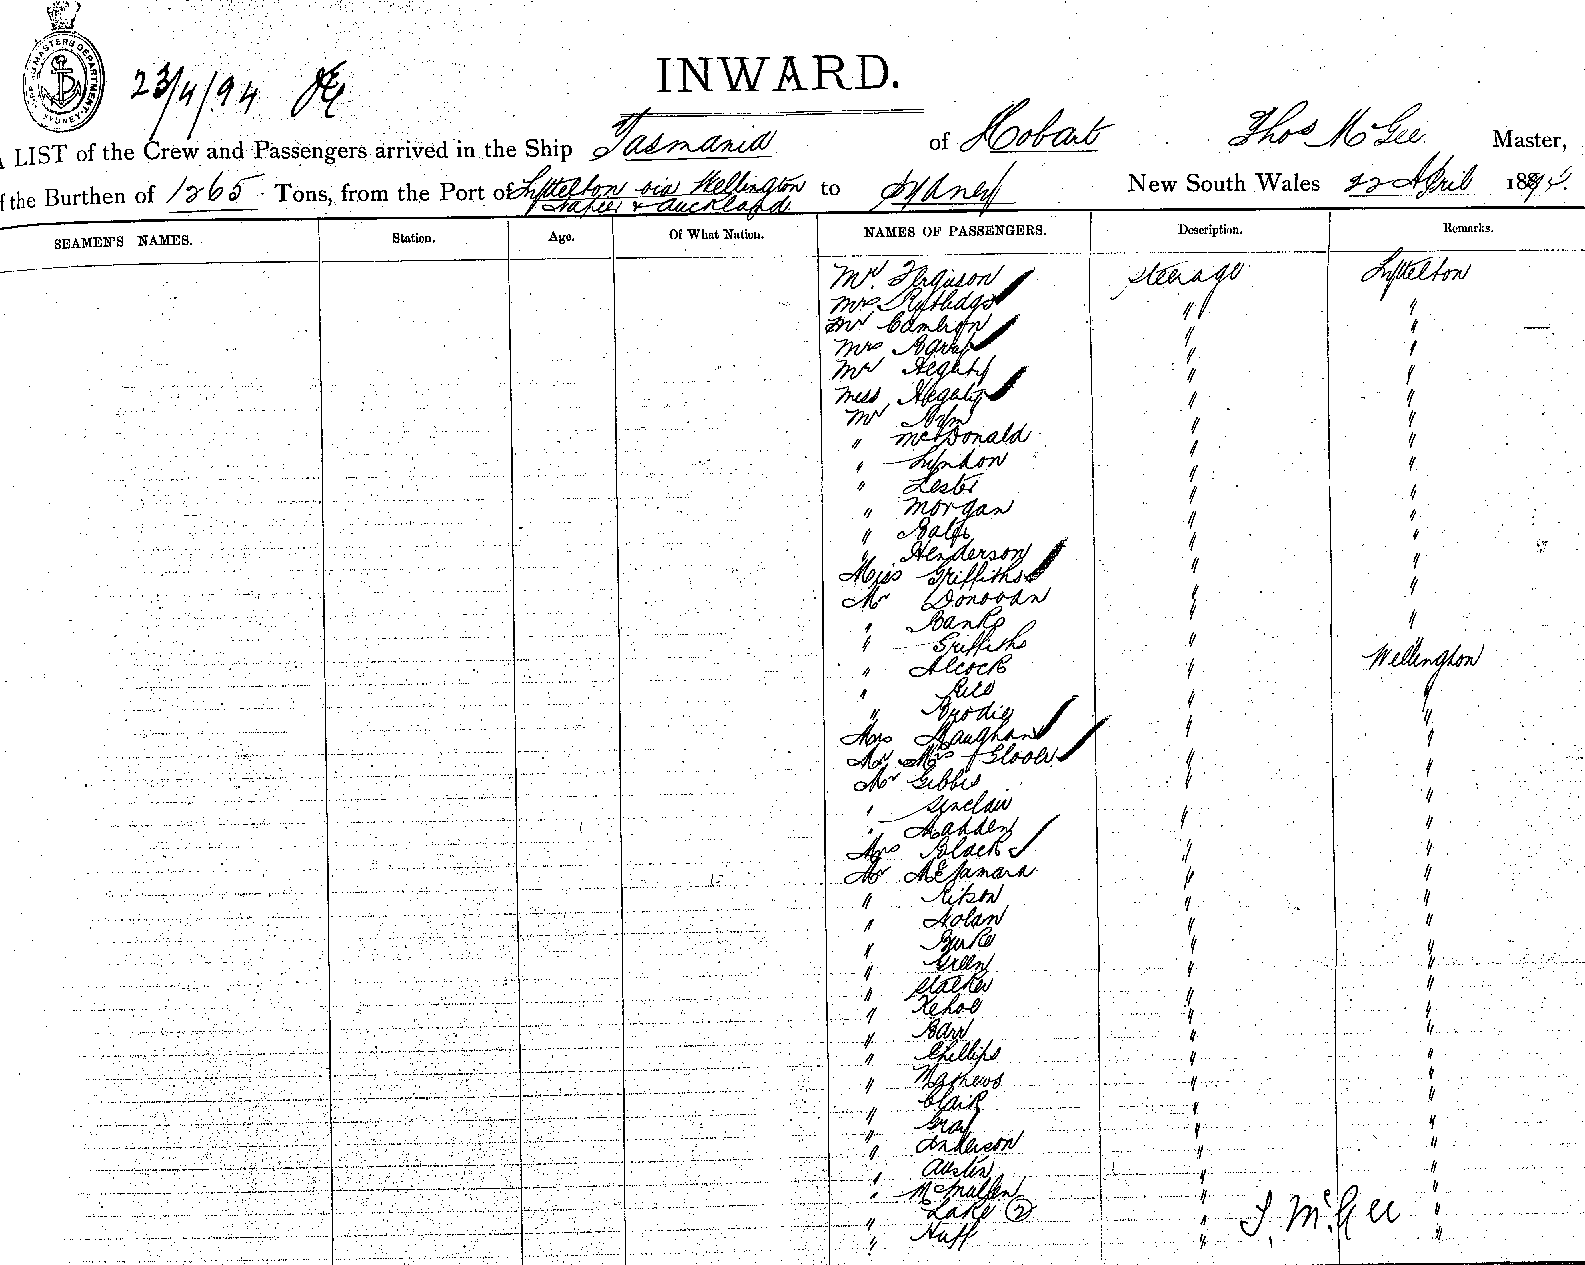 23/4/94
INWARD.
LIST of the Crew and Passengers arrived in the Ship Tasmania of Hobart Thos McGee Master,
of the Burthen of 1265 Tons, from the Port of Lyttelton via Wellington to Sydney New South Wales 22 April 1894.
Napier & Auckland
SEAMEN'S NAMES. Station. Age. Of What Nation. NAMES OF PASSENGERS. Description. Remarks.
Mr. Ferguson Steerage Lyttelton
Mrs Rutledge " "
Mr Cameron " "
Mrs " "
Mr Hegarty " "
Miss Hegarty " "
Mr " "
" McDonald " "
" Lyndon " "
" Lester " "
" Morgan " "
" " "
" Henderson " "
Miss Griffiths " "
Mr Donovan " "
" Banks " "
" Griffiths " Wellington
" Alcock " "
" "
" Brodie " "
Mrs Vaughan " "
Mr Mrs Glover " "
Mr Gibbs " "
" Sinclair " "
" Madden " "
Mrs Black " "
Mr McNamara " "
" Kitson " "
" Nolan " "
" Burke " "
" Green " "
" Stalker " "
" Kehoe " "
" Barr " "
" Phillips " "
" Mathews " "
" Clark " "
" Gray " "
" Anderson " "
" Austin " "
" McMullen " "
" Lake (2) " T. McGee "
" Huff " "